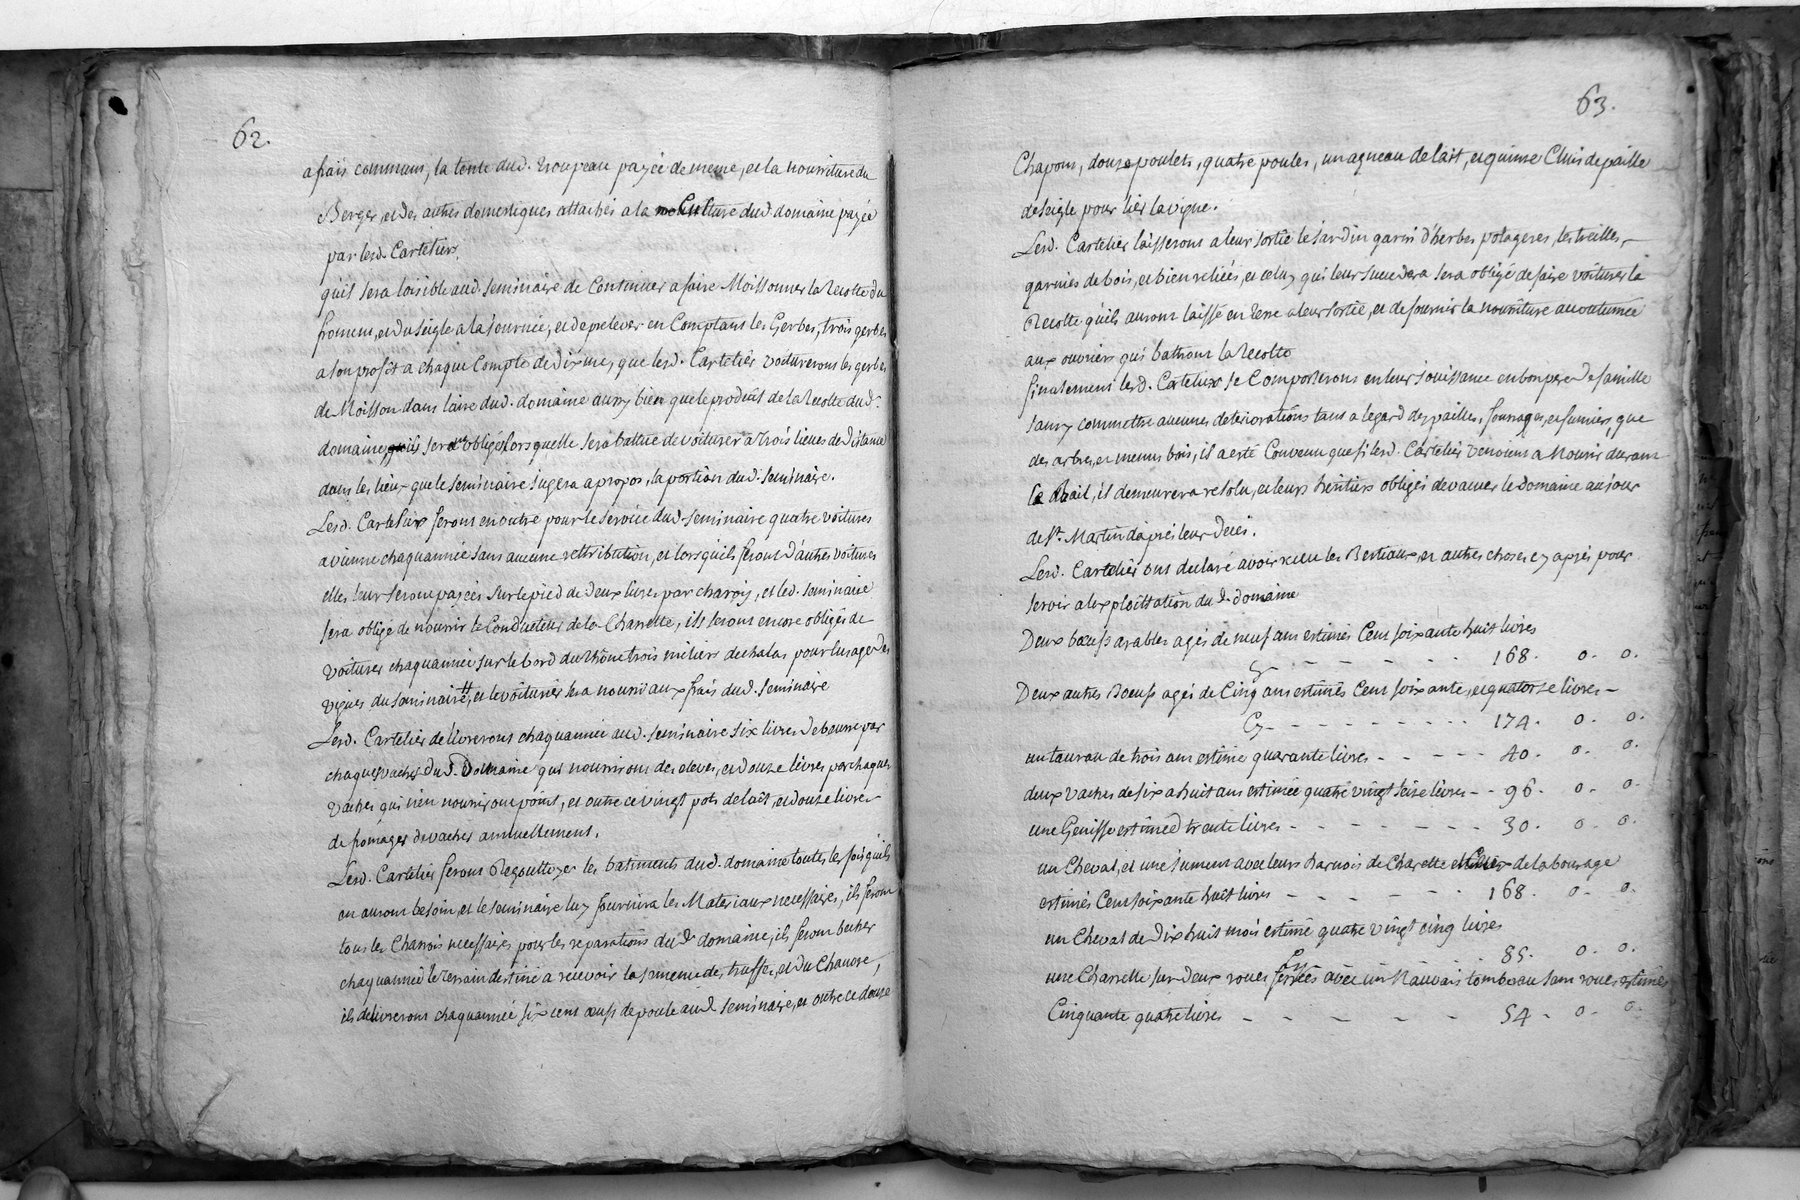 62.
a frais communs, la tonte dud. troupeau payée de meme, et la nourriture du
Berger, et des autres domestiques attachés a la Culture dud. domaine payée
par lesd. Carteliers.
qu'il sera loisible aud. seminaire de Continuer a faire Moissonner la Recolte du
froment, et du seigle a la journée, et de prelever en Comptant les Gerbes, trois gerbes
a son profit a chaque Compte de dixme, que lesd. Cartelier voitureront les gerbes
de Moisson dans laire dud. domaine aussy bien que le produit de la Recolte dud.
domaine, quils seront obligés lorsquelle sera battue de voiturer a trois lieues de distance
dans les lieux que le seminaire jugera a propos, la portion dud. seminaire.
Lesd. Cartelier feront en outre pour le service dud. seminaire quatre voitures
a vienne chaquannée sans aucune rettribution, et lorsquils feront d'autres voitures
elles leur seront payées sur le pied de deux livres par charoy, et led. seminaire
sera obligé de nourrir le Conducteur de la Charrette, ils seront encore obligés de
voiturer chaquannée sur le bord du Rhône trois miliers dechalas pour lusage des
vignes du seminaire, et le voiturier sera nourri aux frais dud. seminaire
Lesd. Cartelier délivreront chaquannée aud. seminaire six livres de beurre par
chaque vaches dud. Domaine qui nourriront des eleves, et douze livres par chaque
vaches qui n'en nouriront point, et outre ce vingt pots de lait, et douze livres
de fromages de vaches annuellement.
Lesd. Cartelier feront Regouttoyer les batiments dud. domaine toutes les fois quils
en auront besoin, et le seminaire luy fournira les Materiaux necessaires, ils feront
tous les Charrois necessaires pour les reparations dud. domaine, ils feront becher
chaquannée le terrain destiné a recevoir la semence des truffes, et du Chanvre,
ils delivreront chaquannée six cent œufs de poule aud. seminaire, et outre ce douze
63.
Chapons, douze poulets, quatre poules, un agneau de lait, et quinze Cluis de paille
de seigle pour lier la vigne.
Lesd. Cartelier laisseront a leur sortie le jardin garni d'herbes potageres, les treilles,
garnies de bois, et bien reliées, et celuy qui leur succedera sera obligé de faire voiturer la
Recolte qu'ils auront laissé en terre a leur sortie, et de fournir la nouriture accoutumée
aux ouvriers qui battront la Recolte
finalement lesd. Cartelier se Comporteront en leur jouissance en bon pere de famille
sans y commettre aucunes deteriorations tant a legard des pailles, fourrages, et fumiers, que
des arbres, et menus bois, il a esté Convenu que si lesd. Cartelier venoient a Mourir durant
le bail, il demeurera resolu, et leurs heritiers obligés de vacuer le Domaine au jour
de St. Martin d'après leur deces.
Lesd. Cartelier ont declaré avoir recu les Bestiaux, et autres choses cy après pour
servir a lexploittation dud. domaine
Deux bœufs arables agés de neuf ans estimés Cent soixante huit livres
Cy - - - - - 168. 0. 0.
Deux autres Boeufs agés de Cinq ans estimés Cent soixante, et quatorze livres -
Cy - - - - - 174. 0. 0.
un taurau de trois ans estimé quarante livres - - - - 40. 0. 0.
deux vaches de six a huit ans estimée quatre vingt seize livres - - 96. 0. 0.
une Genisse estimée trente livres - - - - - 30. 0. 0.
un Cheval, et une jument avec leurs harnois de Charette et Ceux de labourage
estimés Cent soixante huit livres - - - - 168. 0. 0.
un Cheval de dix huit mois estimé quatre vingt cinq livres
Cy - - - - 85. 0. 0.
une Charrette sur deux roues ferrées avec un Mauvais tombereau sans roues estimés
Cinquante quatre livres - - - - - 54. 0. 0.